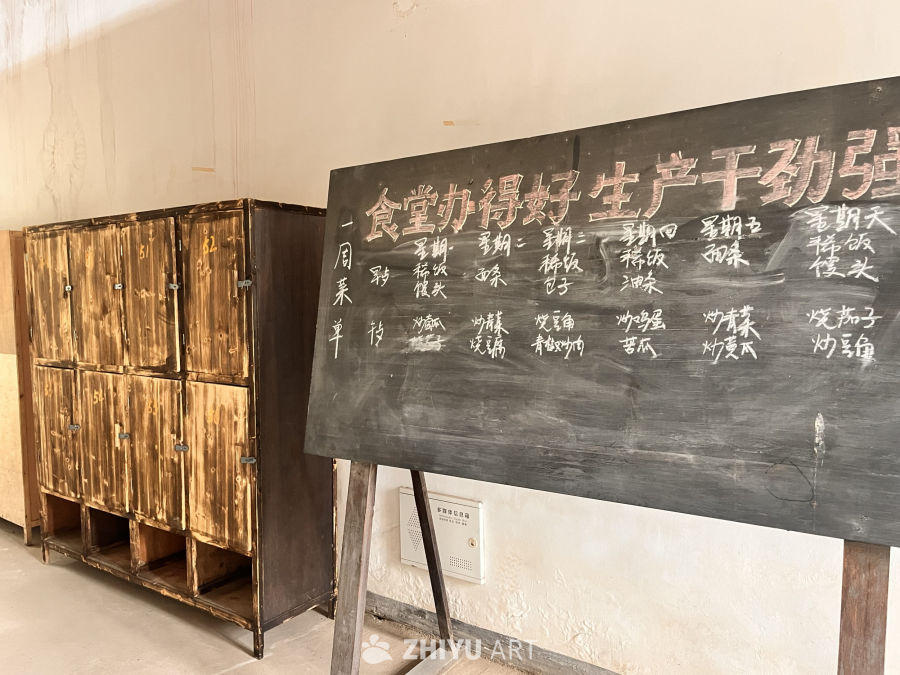 食堂办得好 生产干劲强
一周菜单
星期一 星期二 星期三 星期四 星期五 星期天
早 稀饭 面条 稀饭 稀饭 面条 稀饭
馒头 包子 油条 馒头
炒黄瓜 炒青菜 烧豆角 炒鸡蛋 炒青菜 烧茄子
烧豆腐 青椒炒肉 苦瓜 炒黄瓜 炒豆角
62
多媒体信息箱
ZHIYU ART